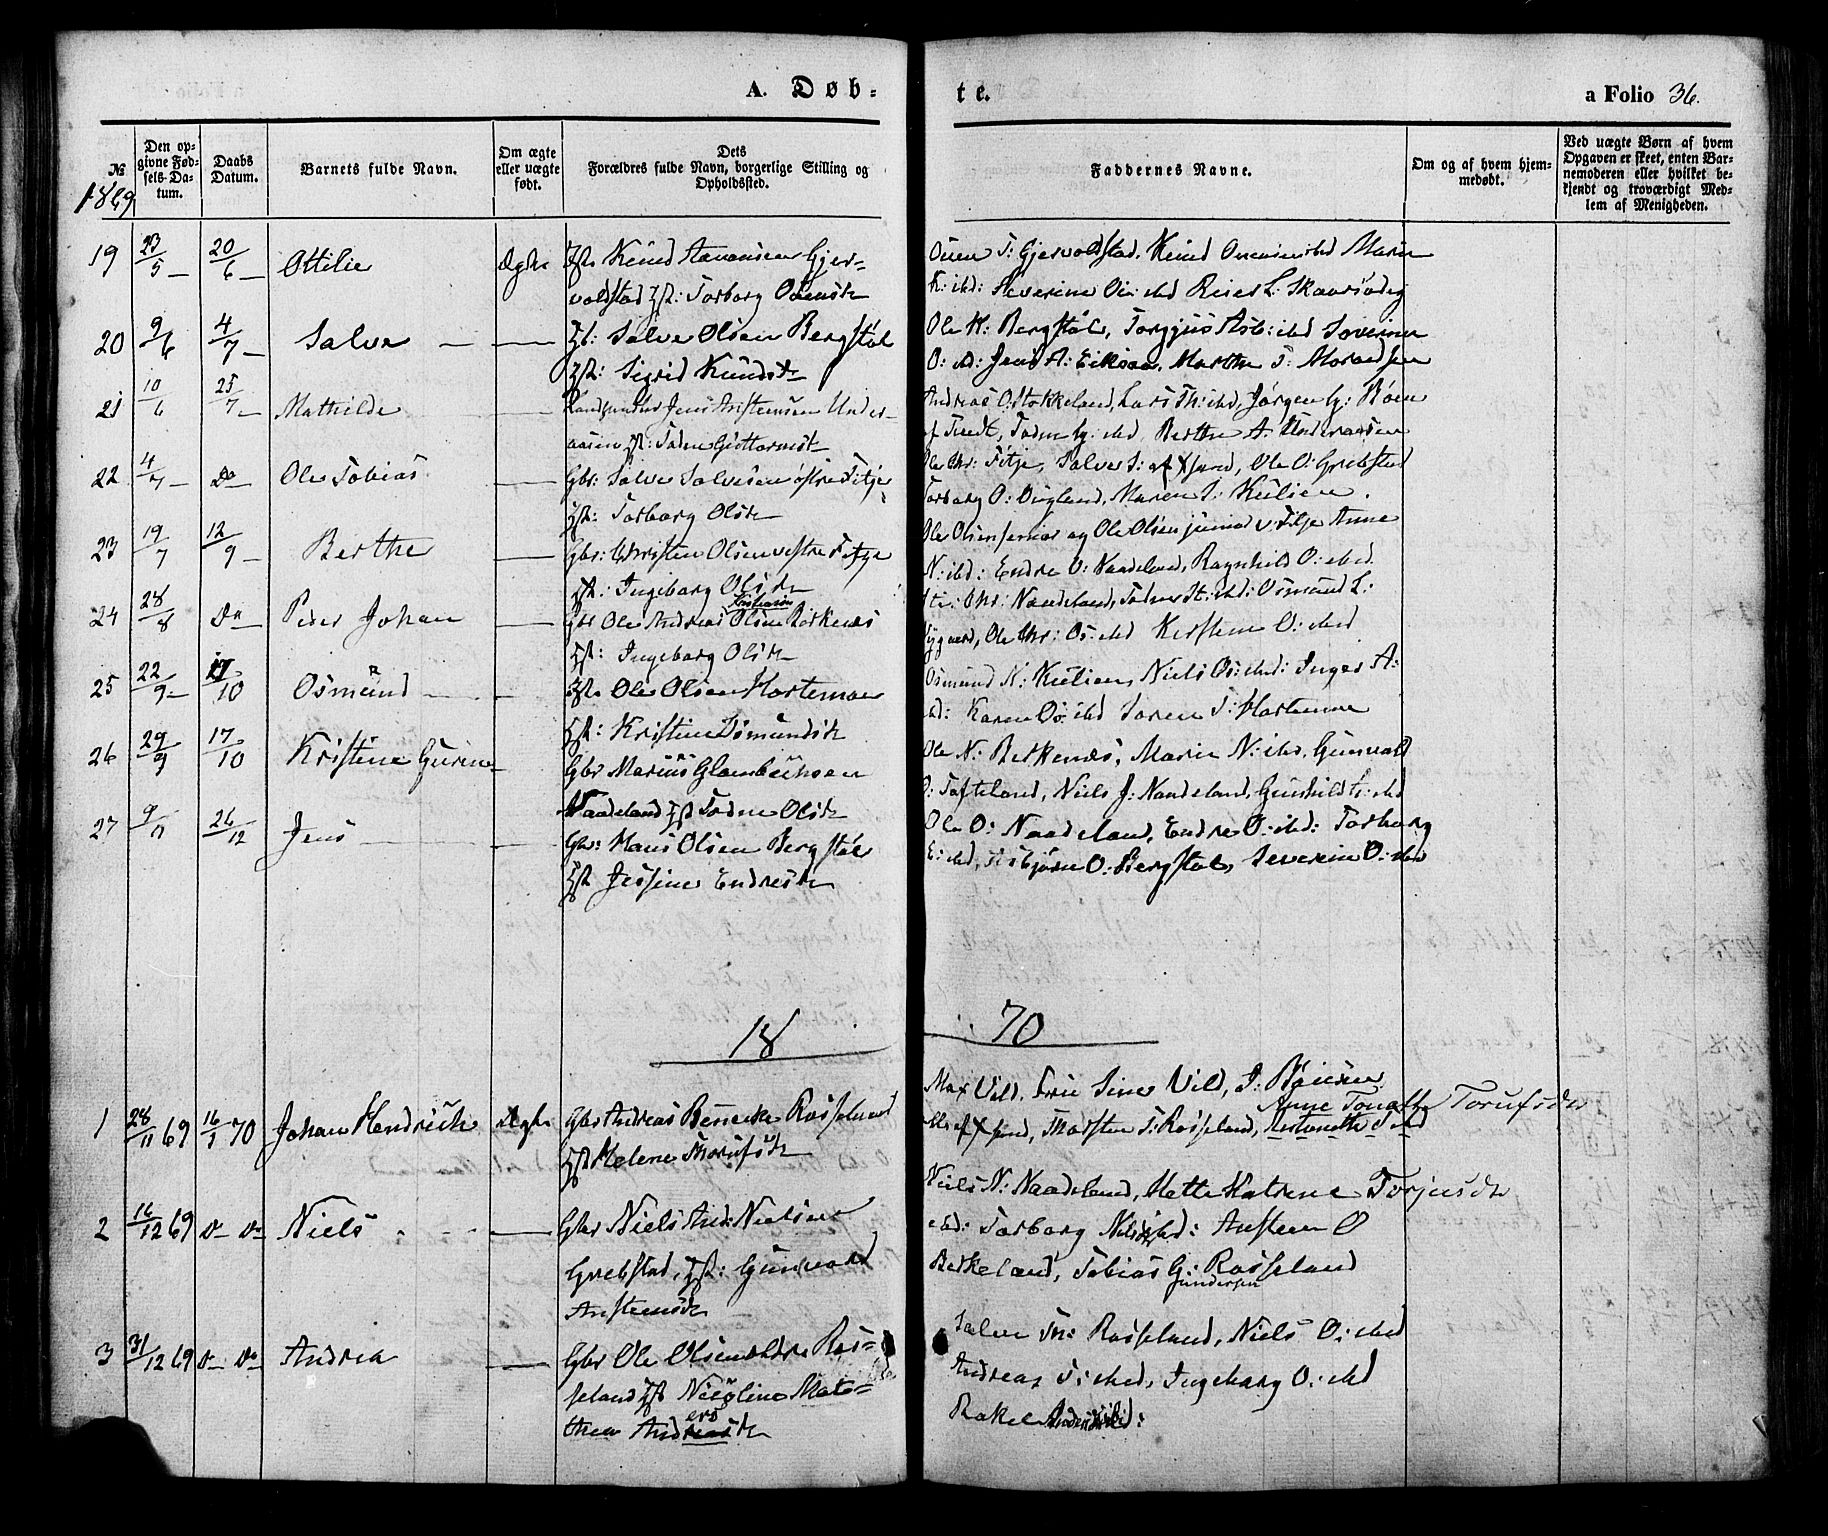 A. Døb-
te.
a Folio 36.
№
1869
Den op-
givne Fød-
sels-Da-
tum.
Daabs
Datum.
Barnets fulde Navn.
Om ægte
eller uægte
født.
Dets
Forældres fulde Navn, borgerlige Stilling og
Opholdssted.
Faddernes Navne.
Om og af hvem hjem-
medøbt.
Ved uægte Børn af hvem
Opgaven er skeet, enten Bar-
nemoderen eller hvilket be-
kjendt og troværdigt Med-
lem af Menigheden.
19 23/5 20/6 Ottilie Ægte Knud Aanonsen Gjer-
voldstad Torborg Osensdr
Osen T: Gjervoldstad, Knud Maren
K: ibd: Severine O: ibd Reier L: Skaarsødeg
20 9/6 4/7 Salve Salve Olsen Bergstøl
Sigrid Knudsdr
Ole K: Bergstøl, Torgjus Asb: ibd
O: ibd: Jens A: Eiksaa, Marthe T:
21 10/6 25/7 Mathilde Jens Anstensen Under-
aasen Todne Guttormsdr
Andreas O: Stokkeland, Lars Th: ibd, Jørgen G: Røen
Todne G: ibd, Berthe A: Underaasen
22 4/7 Do Ole Tobias Gbr: Salve Salvesen østre Fitje
Torborg Olsdr
Ole Chr: Fitje, Salve S: af Xsand, Ole O: Grebstad
Torborg O: Maren S: Kulien.
23 19/7 12/9 Berthe Gbr: Christen Olsen vestre Fitje
Ingeborg Olsdr
Ole Olsen senior og Ole Olsen junior v. Fitje Anne
N: ibd: Endre O: Naadeland, Ragnhild O: ibd.
24 28/8 Do Peder Johan Gbr Ole Andreas Olsen Birkenæs
Ingeborg Olsdr
Chr: Naadeland, Todne St: ibd: Osmund L:
Ole Chr: O: ibd Kirsten O: ibd
25 22/9 17/10 Osmund Ole Olsen Hortemoe
Kristine Osmundsdr
Osmund K: Kulien, Niels Os: ibd: Inger A:
ibd: Karen Os: ibd Søren T: Hortemoe
26 29/9 17/10 Kristine Gurine Gbr Marius Glambeksen
Naadeland Todne Olsdr
Ole N: Birkenæs, Marie N: ibd, Gunvald
O: Tofteland, Niels J: Naadeland, Gunhild G: ibd
27 9/11 26/12 Jens Gbr: Hans Olsen Bergstøl
Jessine Endresdr
Ole O: Naadeland, Endre O: ibd: Torborg
E: ibd, Asbjørn O: Bergstøl, Severine O: ibd
18 70
1 28/11 69 16/1 70 Johan Hendrich Ægte Gbr Andreas Bennecke Rosseland
Helene Thorufsdr
Max Vild, Fru Sine Vild, J:
af Xsand, Thorsten T: Rosseland, Anne Tonette Torufsdr
2 16/12 69 Do Do Niels Gbr Niels And: Nielsen
Grebstad, Gunvald
Anstensdr
Niels N: Naadeland, Mette Katrine Torjusdr
ibd: Torborg Nilsd ibd: Ansten O
Birkeland, Tobias G: Rosseland
Gundersen
3 31/12 69 Do Do Andrea Gbr Ole Olsen vestre Ros-
seland Nicoline Mat-
hea Andersdr
Salve Th: Rosseland, Niels O: ibd
Andreas T: ibd, Ingeborg O: ibd
Rakel Andersd ibid: